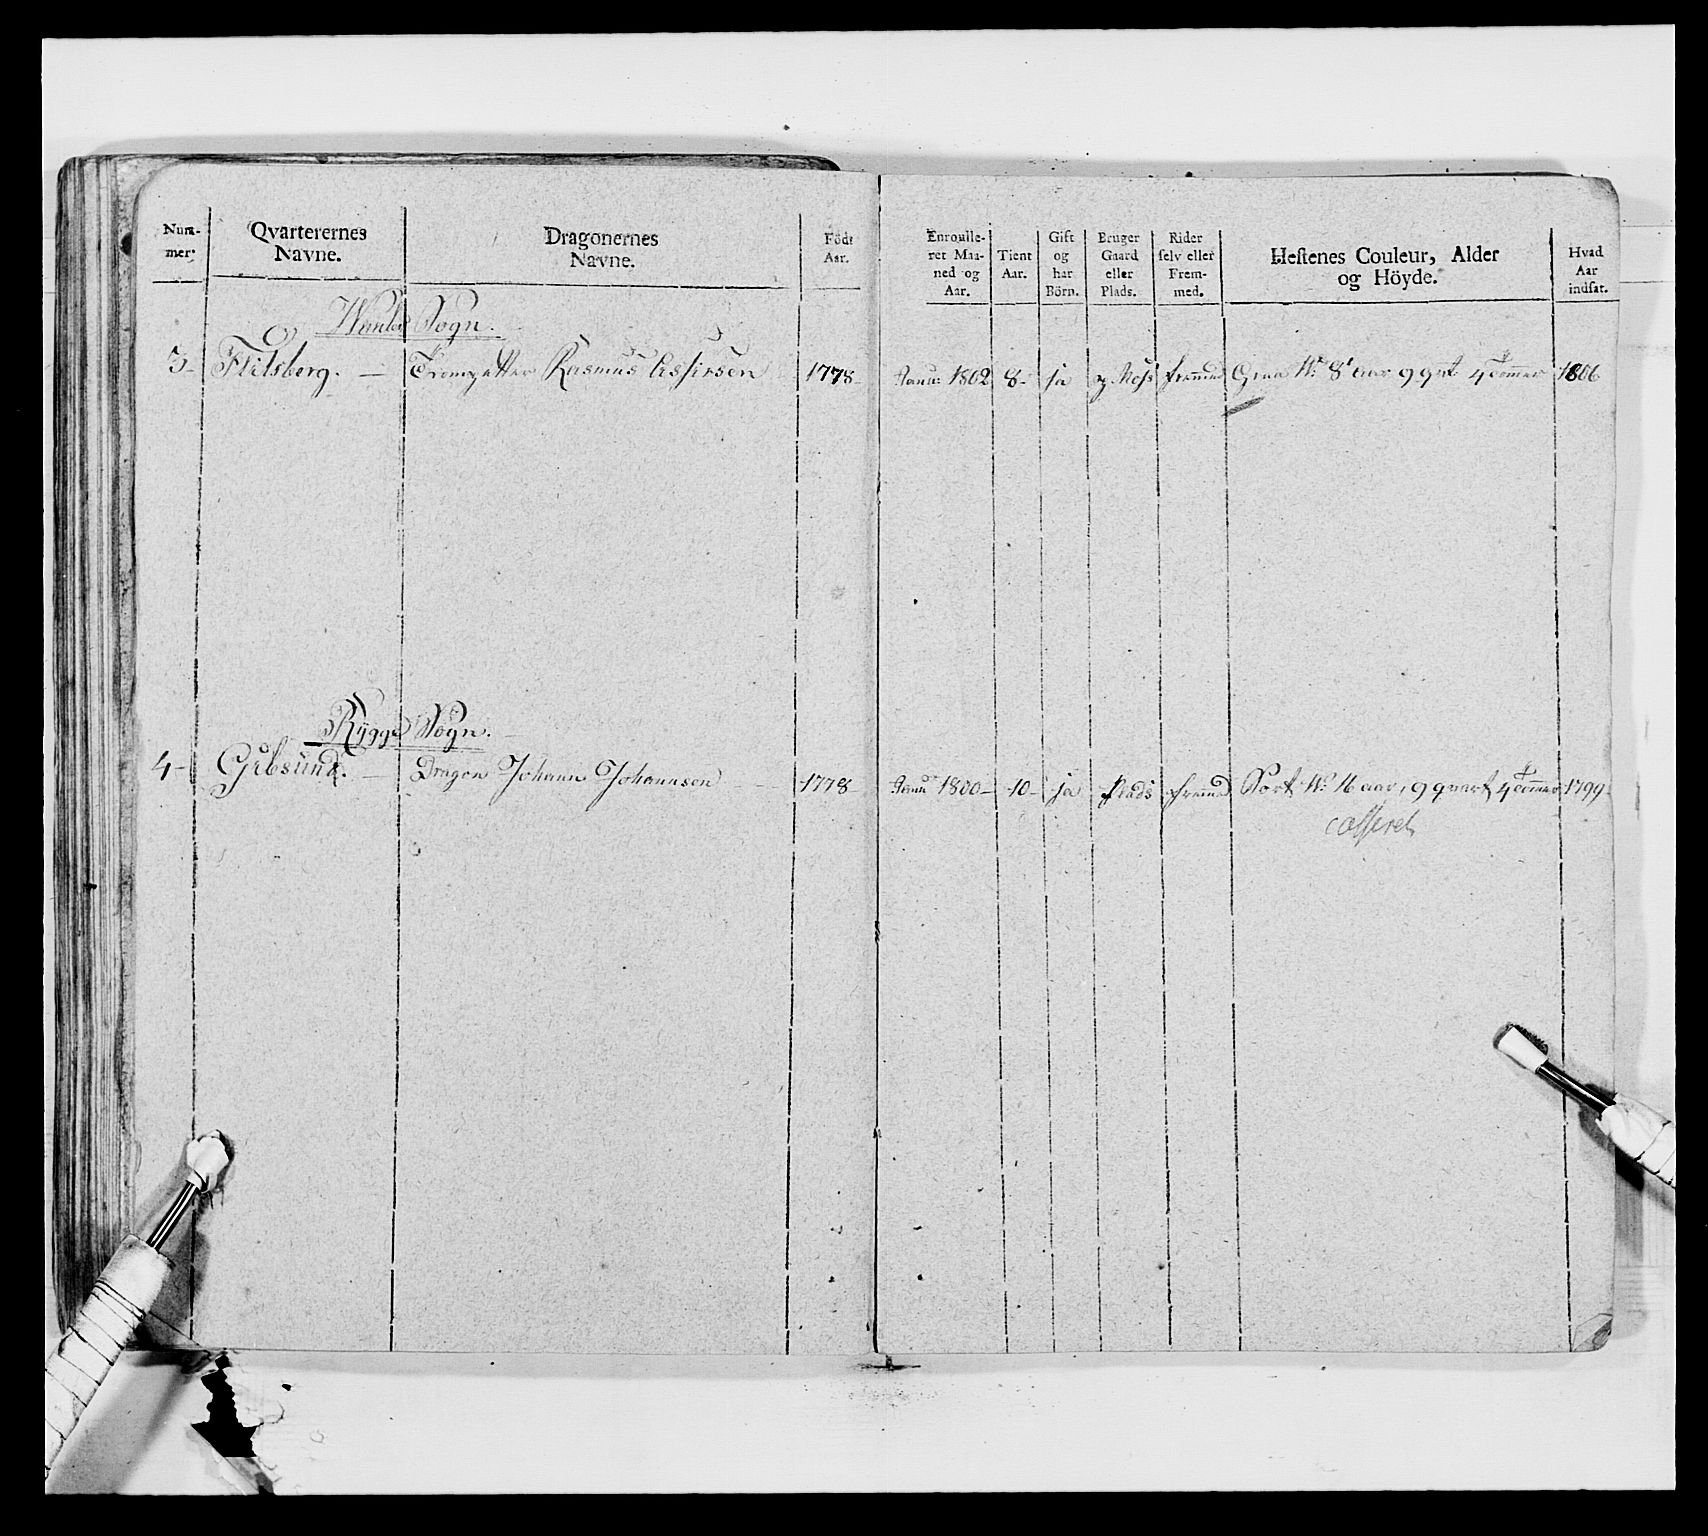 Num-
mer.
Qvarterernes
Navne.
Dragonernes
Navne.
Födt
Aar.
Enroulle-
ret Maa-
ned og
Aar.
Tient
Aar.
Gift
og
har
Börn.
Bruger
Gaard
eller
Plads.
Rider
selv eller
Frem-
med.
Hestenes Couleur, Alder
og Höyde.
Hvad
Aar
indsat.
Sogn.
3- Flitsberg. — Trompetter Rasmus 1778- Janu: 1802 8- ja Moss fremmed 8 aar 9 qvt 4 Tommer 1806
Rygge Sogn.
4- Gribsund. — Dragon Johann Johannsen 1778- Janu: 1800- 10- ja Plads fremmed Sort W: 16 aar, 9 qvart 4 Tommer 1799
casseret